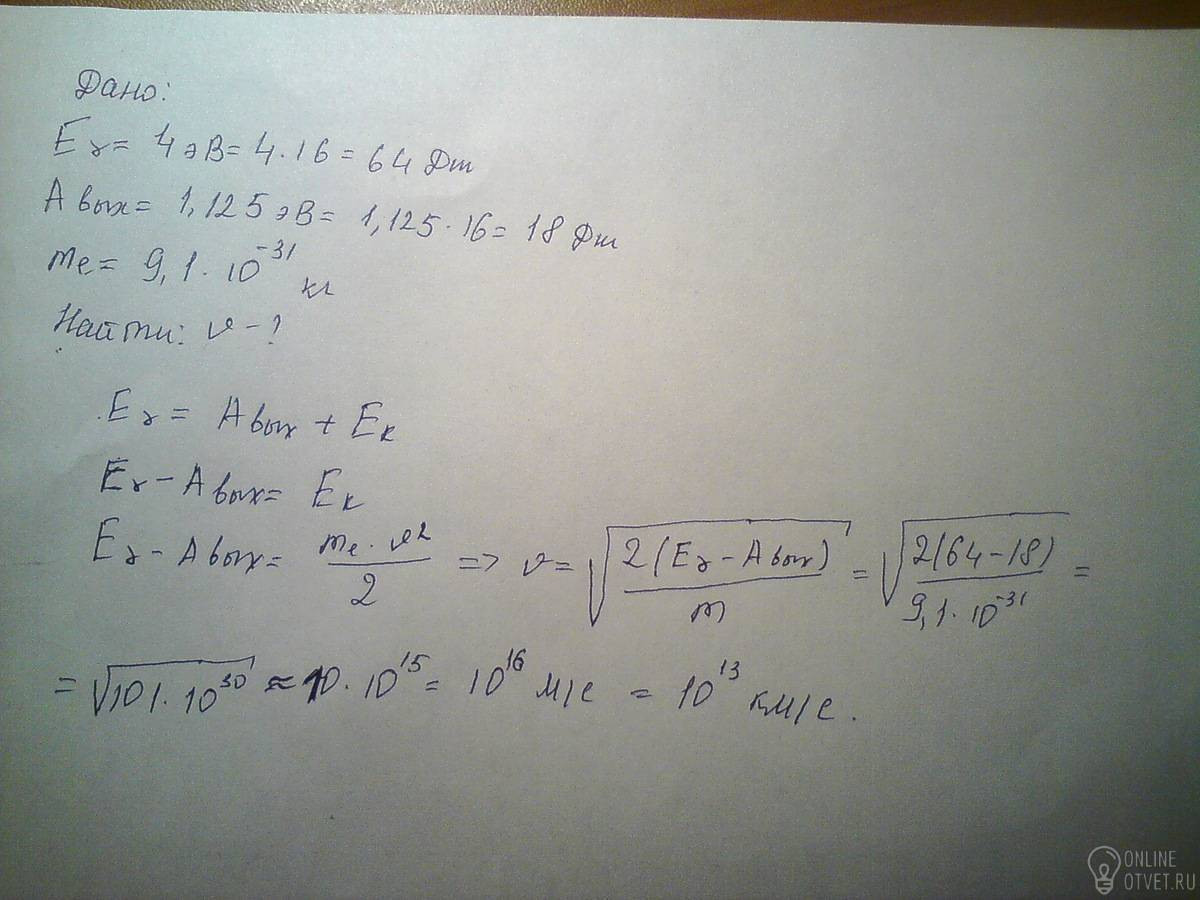 Дано:
Eγ = 4 эВ = 4 · 16 = 64 Дж
Aвых = 1,125 эВ = 1,125 · 16 = 18 Дж
me = 9,1 · 10⁻³¹ кг
Найти: v - ?
Eγ = Aвых + Eк
Eγ - Aвых = Eк
Eγ - Aвых = me · v² / 2 => v = √(2(Eγ - Aвых) / m) = √(2(64 - 18) / 9,1 · 10⁻³¹) =
= √(101 · 10³⁰) ≈ 10 · 10¹⁵ = 10¹⁶ м/с = 10¹³ км/с.
ONLINE
OTVET.RU